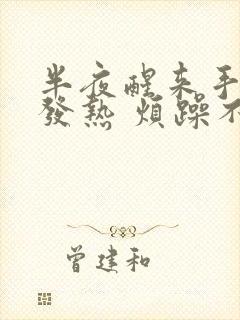 半夜醒来手
發熱 煩躁不
曾建和